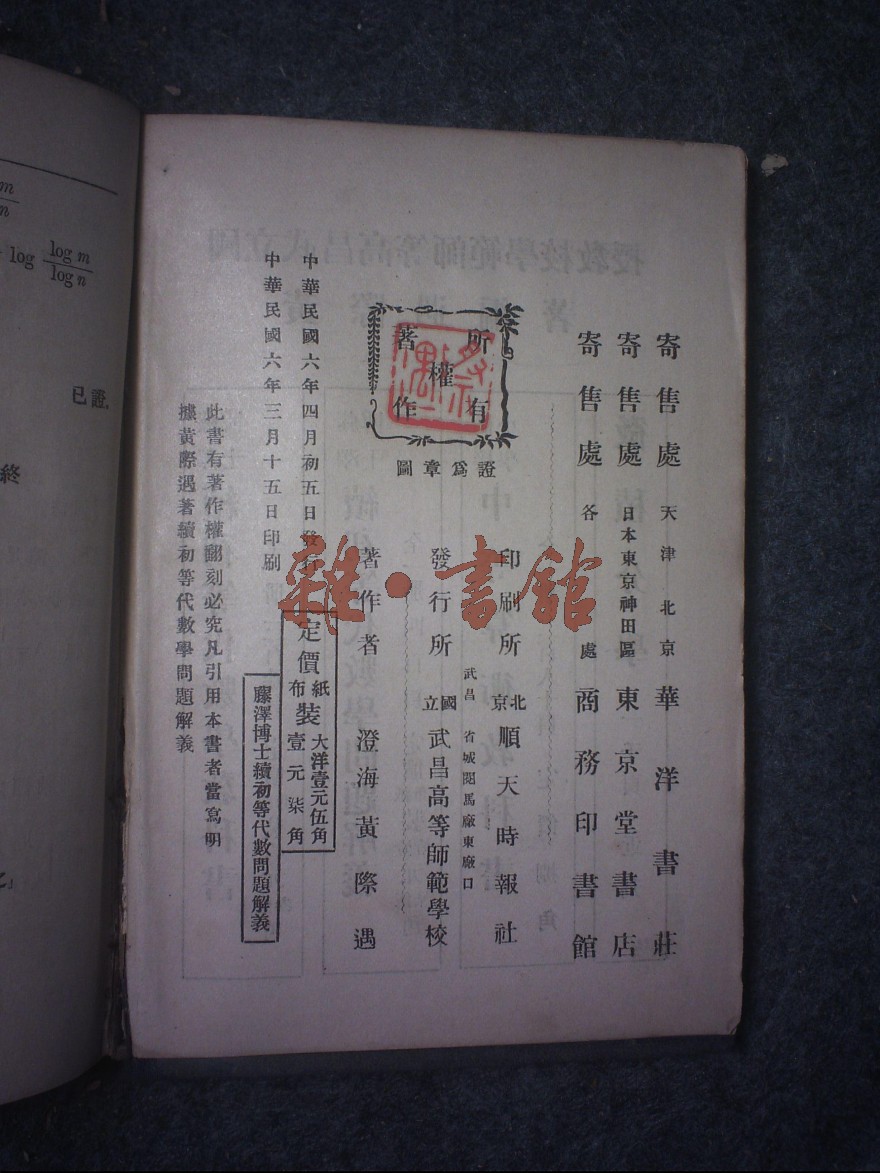 m
n
log log m
log n
已證.
終
寄售處 天津北京 華洋書莊
寄售處 日本東京神田區 東京堂書店
寄售處 各處 商務印書館
所有
權
著作
圖章為證
印刷所 北京 順天時報社
武昌省城閱馬廠東廠口
發行所 國立 武昌高等師範學校
著作者 澄海黃際遇
定價
紙裝 大洋壹元伍角
布裝 壹元柒角
中華民國六年四月初五日發行
中華民國六年三月十五日印刷
藤澤博士續初等代數問題解義
此書有著作權翻刻必究凡引用本書者當寫明
據黃際遇著續初等代數學問題解義
雜·書館